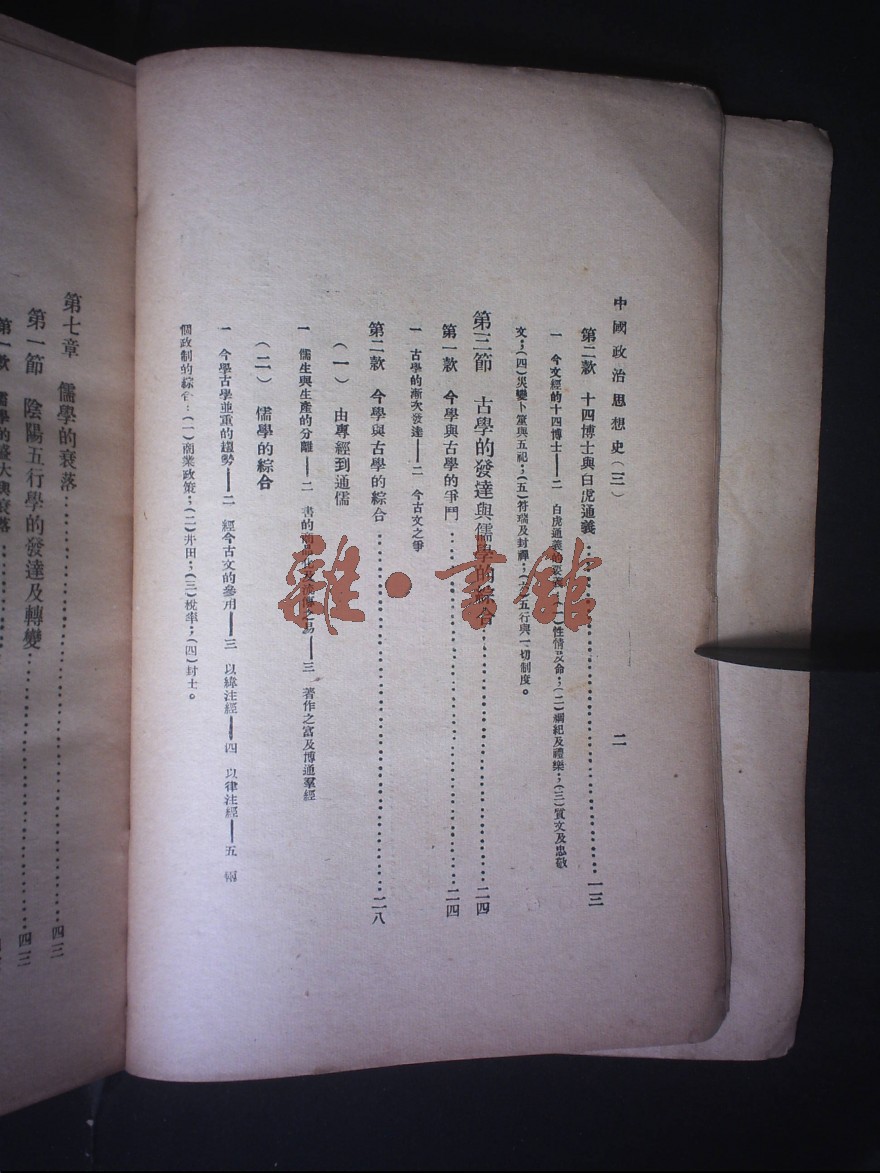 中國政治思想史(三)
二
第二款 十四博士與白虎通義……一三
一 今文經的十四博士——二 白虎通義的要義:(一)性情及命;(二)綱紀及禮樂;(三)質文及忠敬
文;(四)災變卜筮與五祀;(五)符瑞及封禪;(六)五行與一切制度。
第三節 古學的發達與儒學的綜合……二四
第一款 今學與古學的爭鬥……二四
一 古學的漸次發達——二 今古文之爭
第二款 今學與古學的綜合……二八
(一) 由專經到通儒
一 儒生與生產的分離——二 書的商品化及流傳之易——三 著作之富及博通羣經
(二) 儒學的綜合
一 今學古學並重的趨勢——二 經今古文的參用——三 以緯注經——四 以律注經——五 兩
個政制的綜合:(一)商業政策;(二)井田;(三)稅率;(四)封土。
第七章 儒學的衰落……四三
第一節 陰陽五行學的發達及轉變……四三
第一款 儒學的盛大與衰落
雜·書館